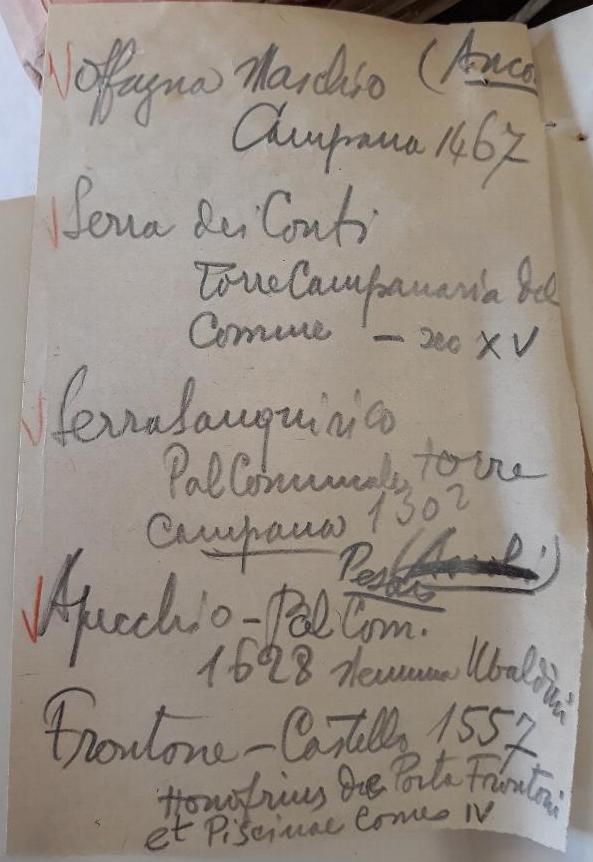 Offagna Maschio (Anco
Campana 1467
Serra dei Conti
Torre Campanaria del
Comune - sec XV
Serra Sanquirico
Pal Comunale, torre
campana 130?
Pesaro
Apecchio - Pal Com.
1628 stemma Ubaldini
Frontone - Castello 1557
Honofrius de Porta Frontoni
et Piscinae Comes IV